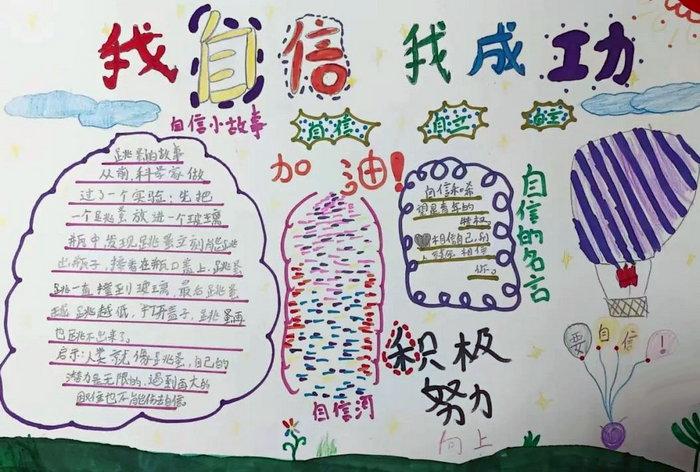 我自信 我成功
自信小故事
自信
自立
自主
跳蚤的故事
从前,科学家做
过了一个实验:先把
一个跳蚤放进一个玻璃
瓶中发现跳蚤立刻能跳
出瓶子,接着在瓶口盖上,跳蚤
跳一直撞到玻璃,最后跳蚤
越跳越低,打开盖子,跳蚤再
也跳不出来了。
启示:人类就像跳蚤,自己的
潜力是无限的,遇到再大的
困难也不能失去自信。
加油!
自信河
自信和希
望是青年的
特权
相信自己的
人
自信的名言
积极
努力
向上
要自信!